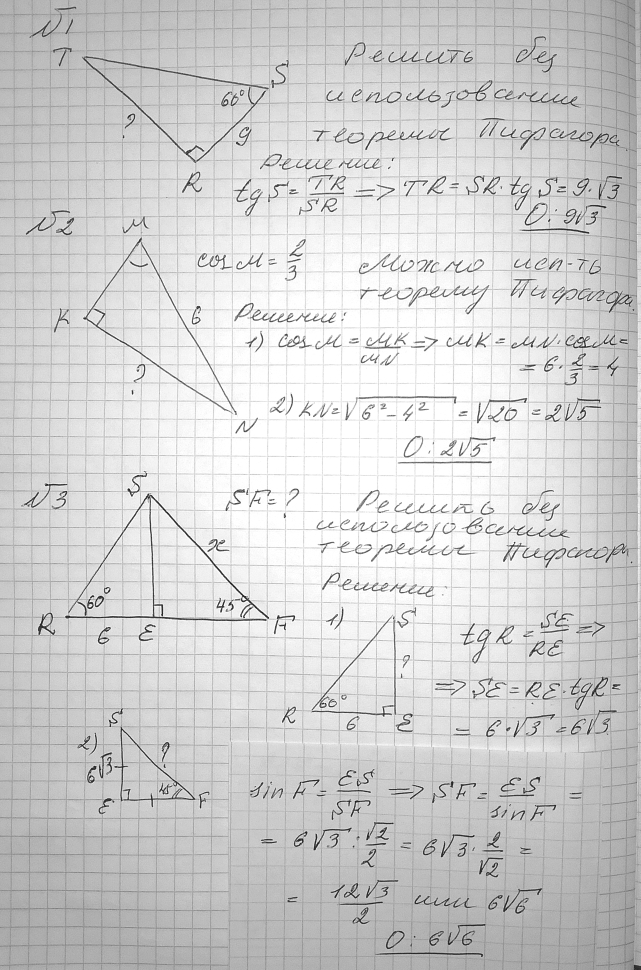 №1
T
S
60°
?
9
R
Решить без
использования
теоремы Пифагора.
Решение:
tg S = TR/SR => TR = SR · tg S = 9 · √3
О: 9√3
№2
M
cos M = 2/3
Можно исп-ть
теорему Пифагора.
K
6
?
N
Решение:
1) cos M = MK/MN => MK = MN · cos M =
= 6 · 2/3 = 4
2) KN = √6² - 4² = √20 = 2√5
О: 2√5
№3
S
SF = ?
x
60°
45°
R
6
E
F
Решить без
использования
теоремы Пифагора.
Решение:
1)
S
?
60°
R
6
E
tg R = SE/RE =>
=> SE = RE · tg R =
= 6 · √3 = 6√3
2)
S
6√3
?
45°
E
F
sin F = ES/SF => SF = ES/sin F =
= 6√3 : √2/2 = 6√3 · 2/√2 =
= 12√3/2 или 6√6
О: 6√6